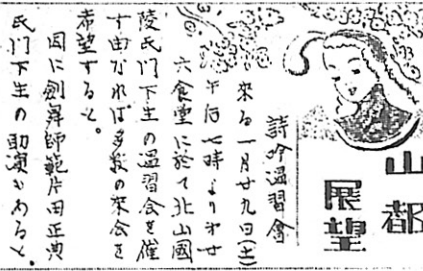 山都
展望
詩吟温習會
來る一月廿九日(土)
午后七時より第廿
六食堂に於て北山國
陵氏門下生の温習会を催
す由なれば多数の来会を
希望すると。
因に剣舞師範片田正典
氏門下生の助演もあると。